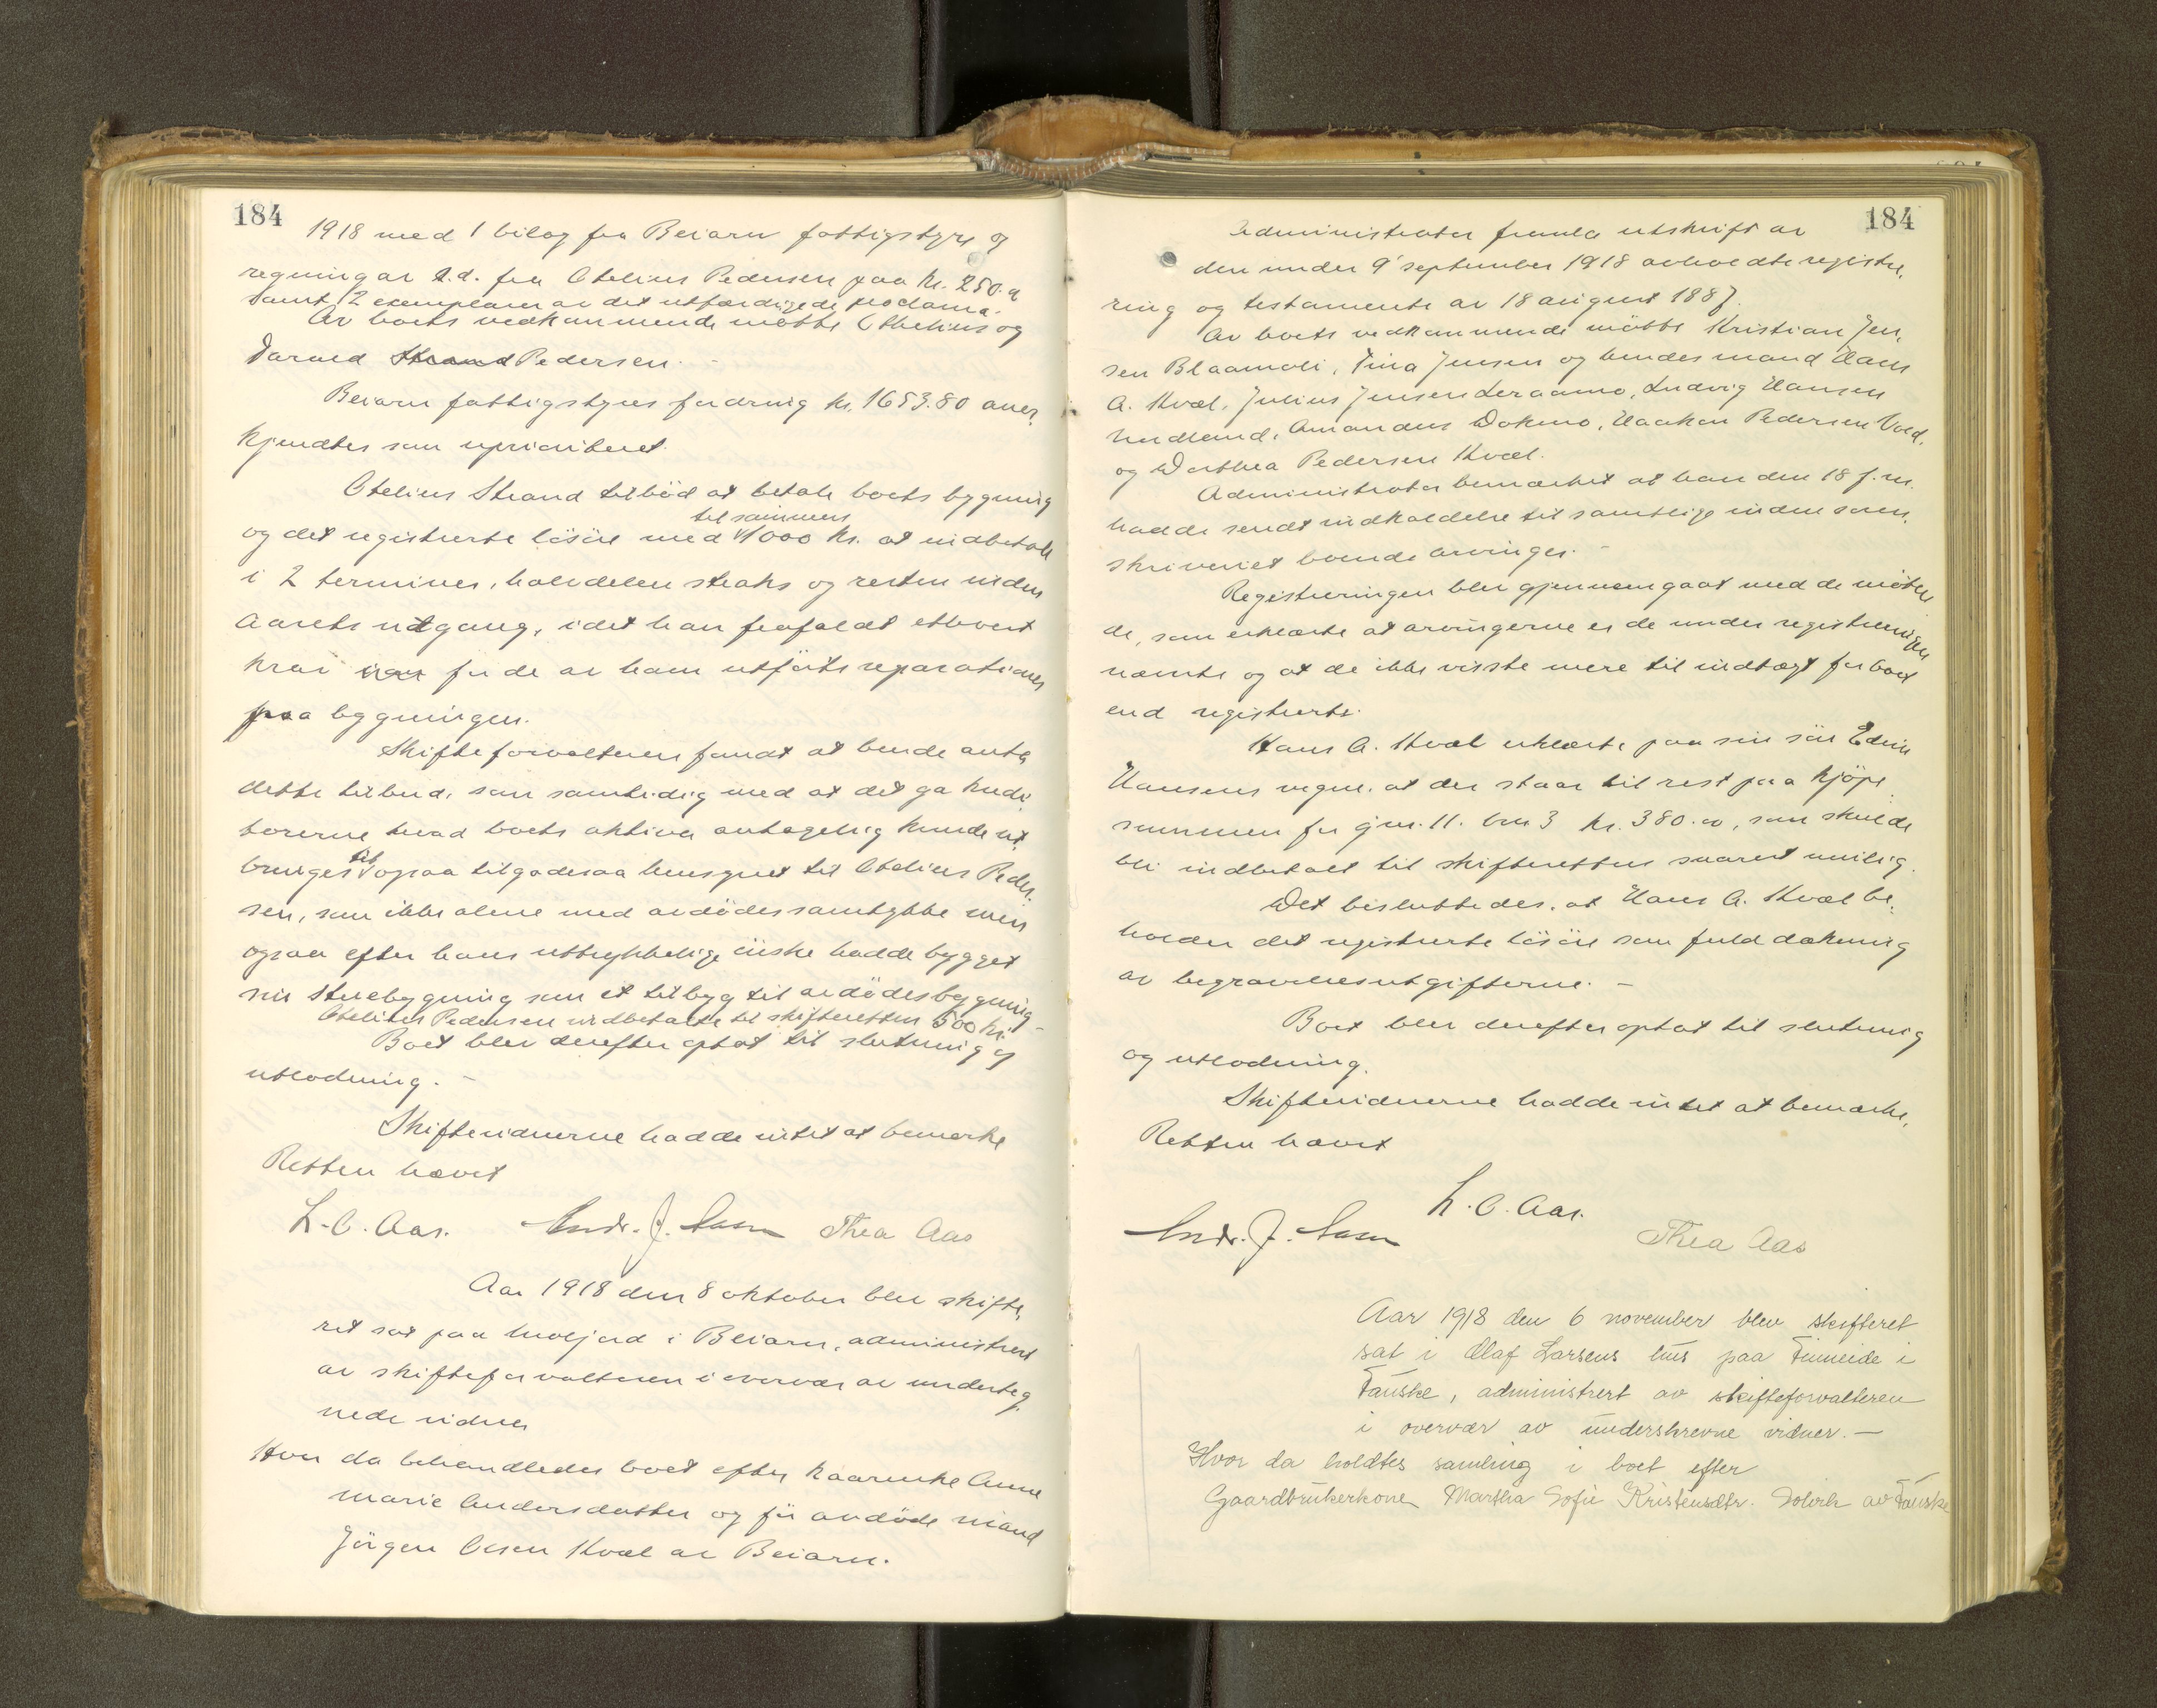 184
1918 med 1 bilag fra Beiarn fattigstyre og
regning av s.d. fra Otelius Pedersen paa kr. 250.
samt 2 exemplarer av det utfærdigede proclama.
Av boets vedkommende møtte Othelius og
Harald Strand Pedersen. -
Beiarn fattigstyres fordring kr. 1653.80 aner,
kjendtes som uprioritert.
Otelius Strand tilbød at betale boets bygning
til sammens
og det registrerte løsøre med 1000 kr. at indbetale
i 2 terminer, halvdelen straks og resten inden
aarets utgang, idet han frafaldt ethvert
krav for de av ham utførte reparationer
paa bygningen.
Skifteforvalteren fandt at burde anta
dette tilbud, som samtidig med at det ga kredi,
torerne hvad boets aktiva antagelig kunde ut,
bringes til ogsaa tilgodesaa hensynet til Otelius Peder,
sen, som ikke alene med avdødes samtykke men
ogsaa efter hans uttrykkelige ønske hadde bygget
sin stuebygning som et tilbyg til avdødes bygning -
Otelius Pedersen indbetalte til skifteretten 500 kr.
Boet blev derefter optat til slutning og
utlodning. -
Skiftevidnerne hadde intet at bemerke
Retten hævet
L. C. Aas. Andr. J. Aasen Thea Aas
Aar 1918 den 8 oktober blev skifte,
ret sat paa Moljord i Beiarn, administrert
av skifteforvalteren i overvær av underteg,
nede vidner
Hvor da behandledes boet efter kaarenke Anne
Marie Andersdatter og før avdøde mand
Jørgen Olsen Kvæl av Beiarn.
184
Administrator fremla utskrift av
den under 9' september 1918 avholdte registre,
ring og testamente av 18 august 1887.
Av boets vedkommende møtte Kristian Jen,
sen Blaamoli, Tina Jensen og hendes mand Hans
A. Kvæl, Julius Jensen Leraamo, Ludvig Hansen
Amandus Dokmo, Haakon Pedersen Vold,
og Dorthea Pedersen Kvæl.
Administrator bemærket at han den 18 f. m.
hadde sendt indkaldelse til samtlige inden soren,
skriveriet boende arvinger. -
Registreringen blev gjennemgaat med de møten,
de, som erklærte at arvingerne er de under registreringen
nævnte og at de ikke visste mere til indtægt for boet
end registrerte.
Hans A. Kvæl erklærte paa sin søn Edvin
Hansens vegne, at der staar til rest paa kjøpe,
summen for gnr. 11. bnr 3 kr. 380.00, som skulde
bli indbetalt til skifteretten snarest mulig.
Det besluttedes, at Hans A. Kvæl be,
holder det registrerte løsøre som fuld dækning
av begravelsesutgifterne. -
Boet blev derefter optat til slutning
og utlodning.
Skiftevidnerne hadde intet at bemærke,
Retten hævet
L. C. Aas.
Andr. J. Aasen Thea Aas
Aar 1918 den 6 november blev skifteret
sat i Olaf Larsens hus paa Finneide i
Fauske, administrert av skifteforvalteren
i overvær av underskrevne vidner. -
Hvor da holdtes samling i boet efter
Gaardbrukerkone Martha Sofie Kristensdtr. av Fauske